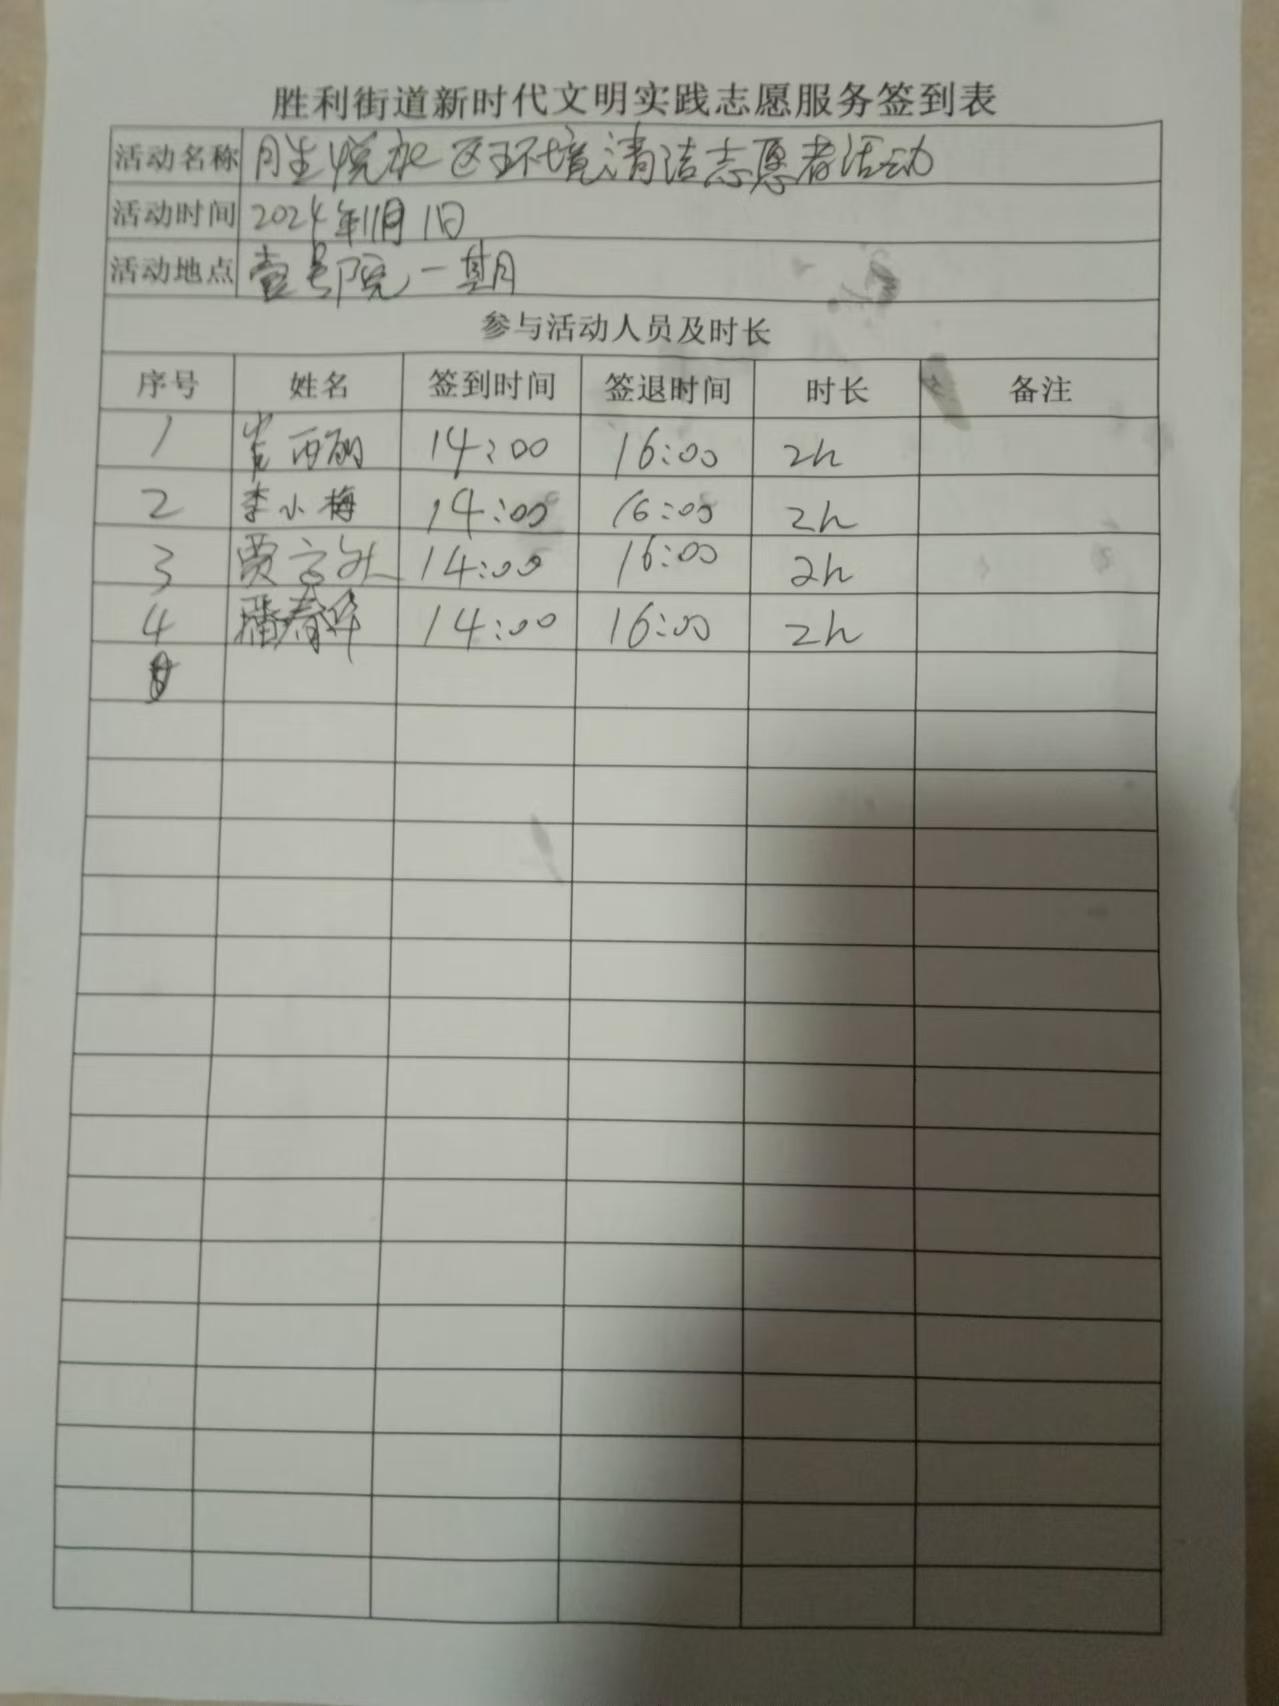 胜利街道新时代文明实践志愿服务签到表
活动名称 胜悦社区环境清洁志愿者活动
活动时间 2024年11月1日
活动地点 壹号院一期
参与活动人员及时长
序号 姓名 签到时间 签退时间 时长 备注
1 14:00 16:00 2h
2 李小梅 14:00 16:00 2h
3 贾 14:00 16:00 2h
4 潘春华 14:00 16:00 2h